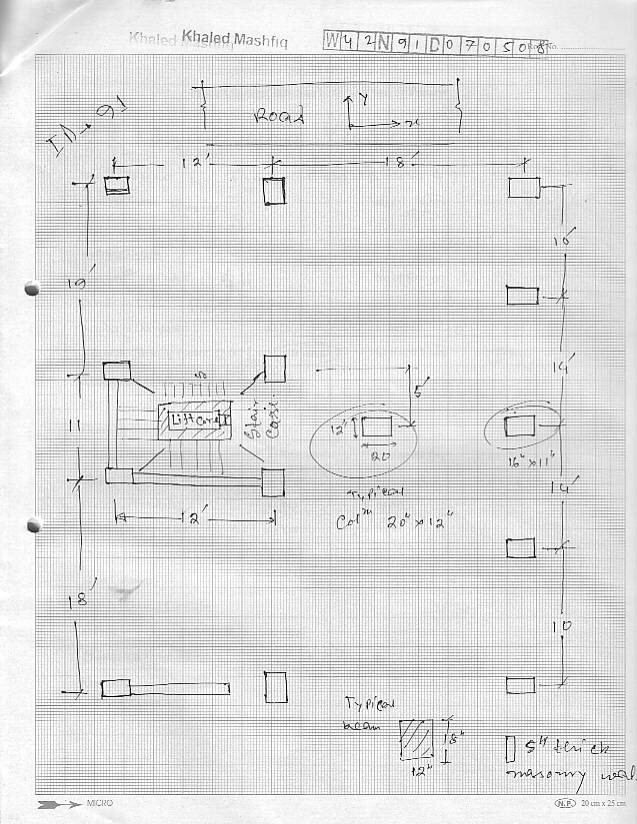 Khaled Mashfiq
W42N91D070508
ID → 91
Road
Y
x
12'
18'
10'
19'
14'
5'
11
Lift Core
Stair
Case
12"
20
16" x 11"
Typical
Colm 20" x 12"
14'
12'
18'
10
Typical
beam
18"
12"
5" thick
masonry wall
MICRO
N.P. 20 cm x 25 cm